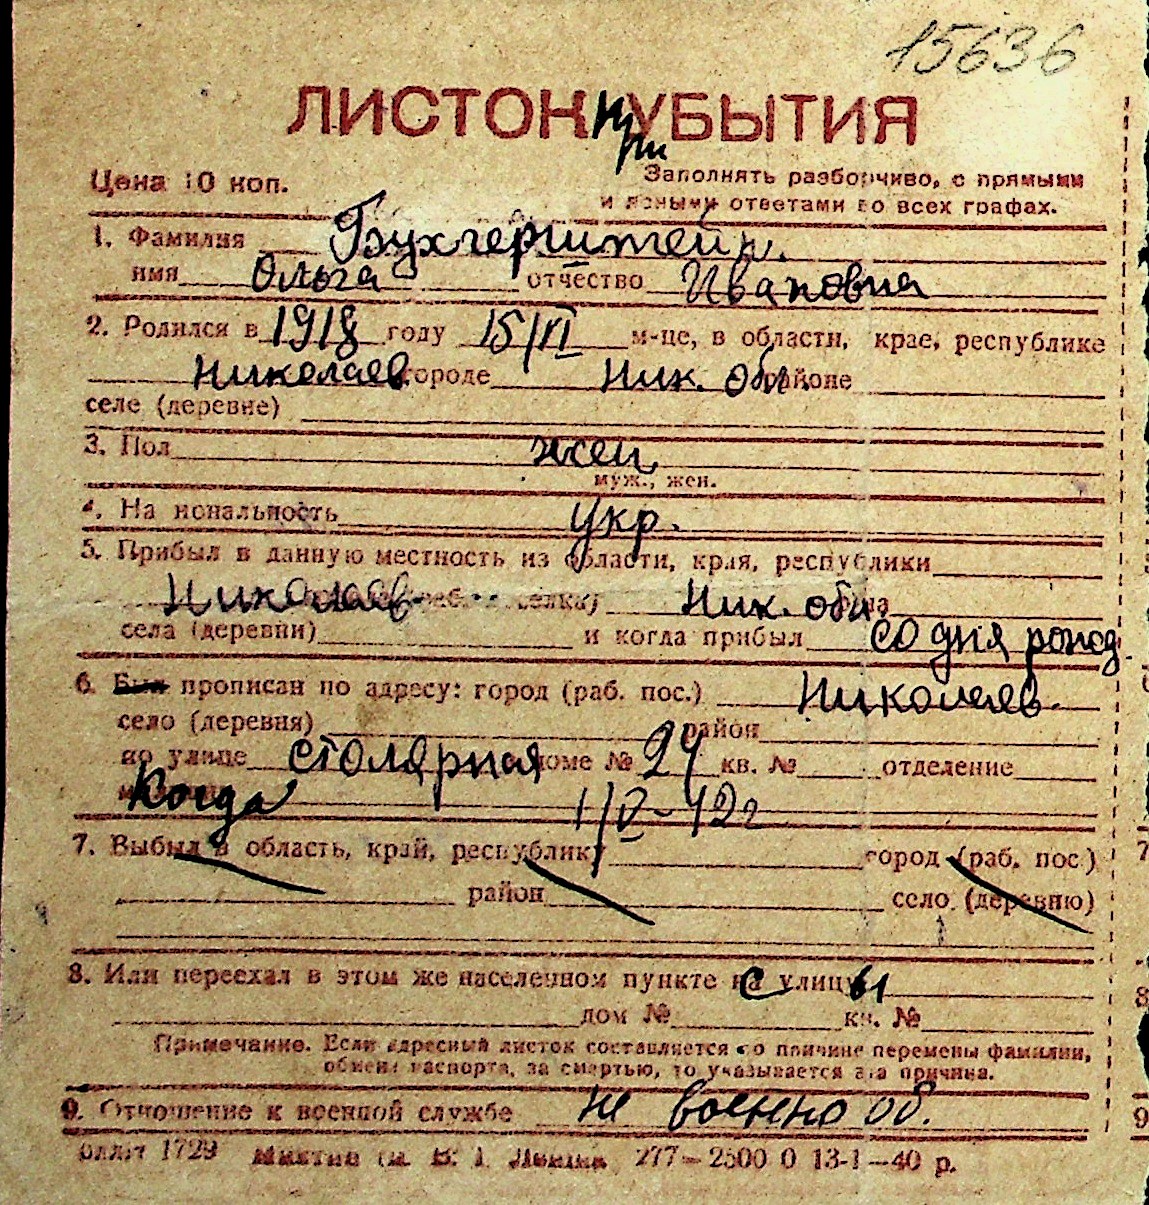 15636
ЛИСТОК при УБЫТИЯ
Цена 10 коп. Заполнять разборчиво, с прямыми
и ясными ответами во всех графах.
1. Фамилия Бухгерштейн.
имя Ольга отчество Ивановна
2. Родился в 1918 году 15/VI м-це, в области, крае, республике
Николаев городе Ник. обл. районе
селе (деревне)
3. Пол жен
муж., жен.
4. Национальность укр.
5. Прибыл в данную местность из области, края, республики
Николаев Ник. обл.
села (деревни) и когда прибыл со дня рожд.
6. Был прописан по адресу: город (раб. пос.) Николаев.
село (деревня) район
по улице столярная доме № 24 кв. № отделение
Когда 1/V-42г
7. Выбыл в область, край, республику город (раб. пос.)
район село (деревню)
8. Или переехал в этом же населенном пункте с улицы
дом № кв. №
Примечание. Если адресный листок составляется по причине перемены фамилии,
обмена паспорта, за смертью, то указывается эта причина.
9. Отношение к военной службе не военно об.
1729 им. В. И. Ленина 277—2500 0 13-1—40 р.
7
8
9